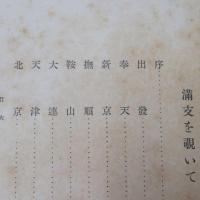 満支を覗いて
序
出發
奉天
新京
撫順
鞍山
大連
天津
北京
目次